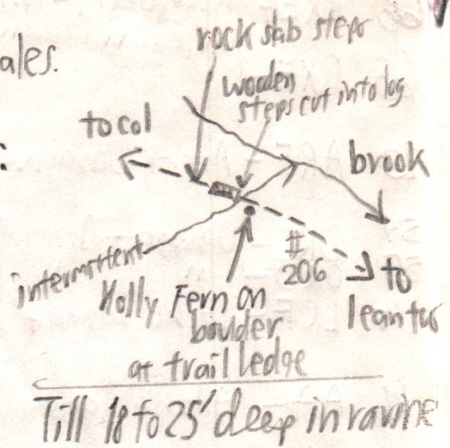 ales.
rock slab steps
wooden
steps cut into log
to col
:
brook
intermittent
#
206
to
leantos
Holly Fern on
boulder
at trail ledge
Till 18 to 25' deep in ravine